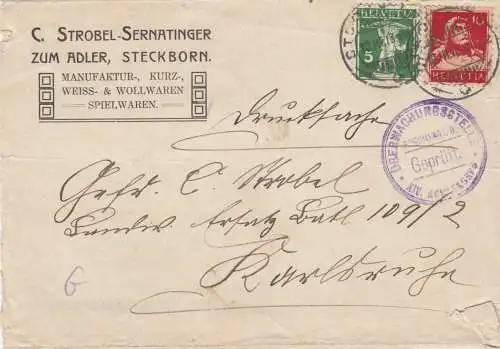 C. STROBEL-SERNATINGER
ZUM ADLER, STECKBORN.
MANUFAKTUR-, KURZ-,
WEISS- & WOLLWAREN
SPIELWAREN.
HELVETIA
5
10
HELVETIA
ÜBERWACHUNGSSTELLE
Geprüft.
XIV.
Drucksache
Gefr. C. Strobel
Landw. Ersatz Batl 109/2
Karlsruhe
G